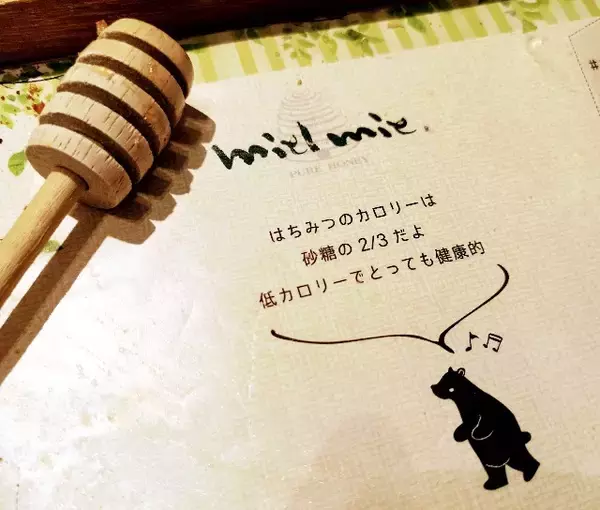 miel mie
PURE HONEY
はちみつのカロリーは
砂糖の2/3だよ
低カロリーでとっても健康的
#